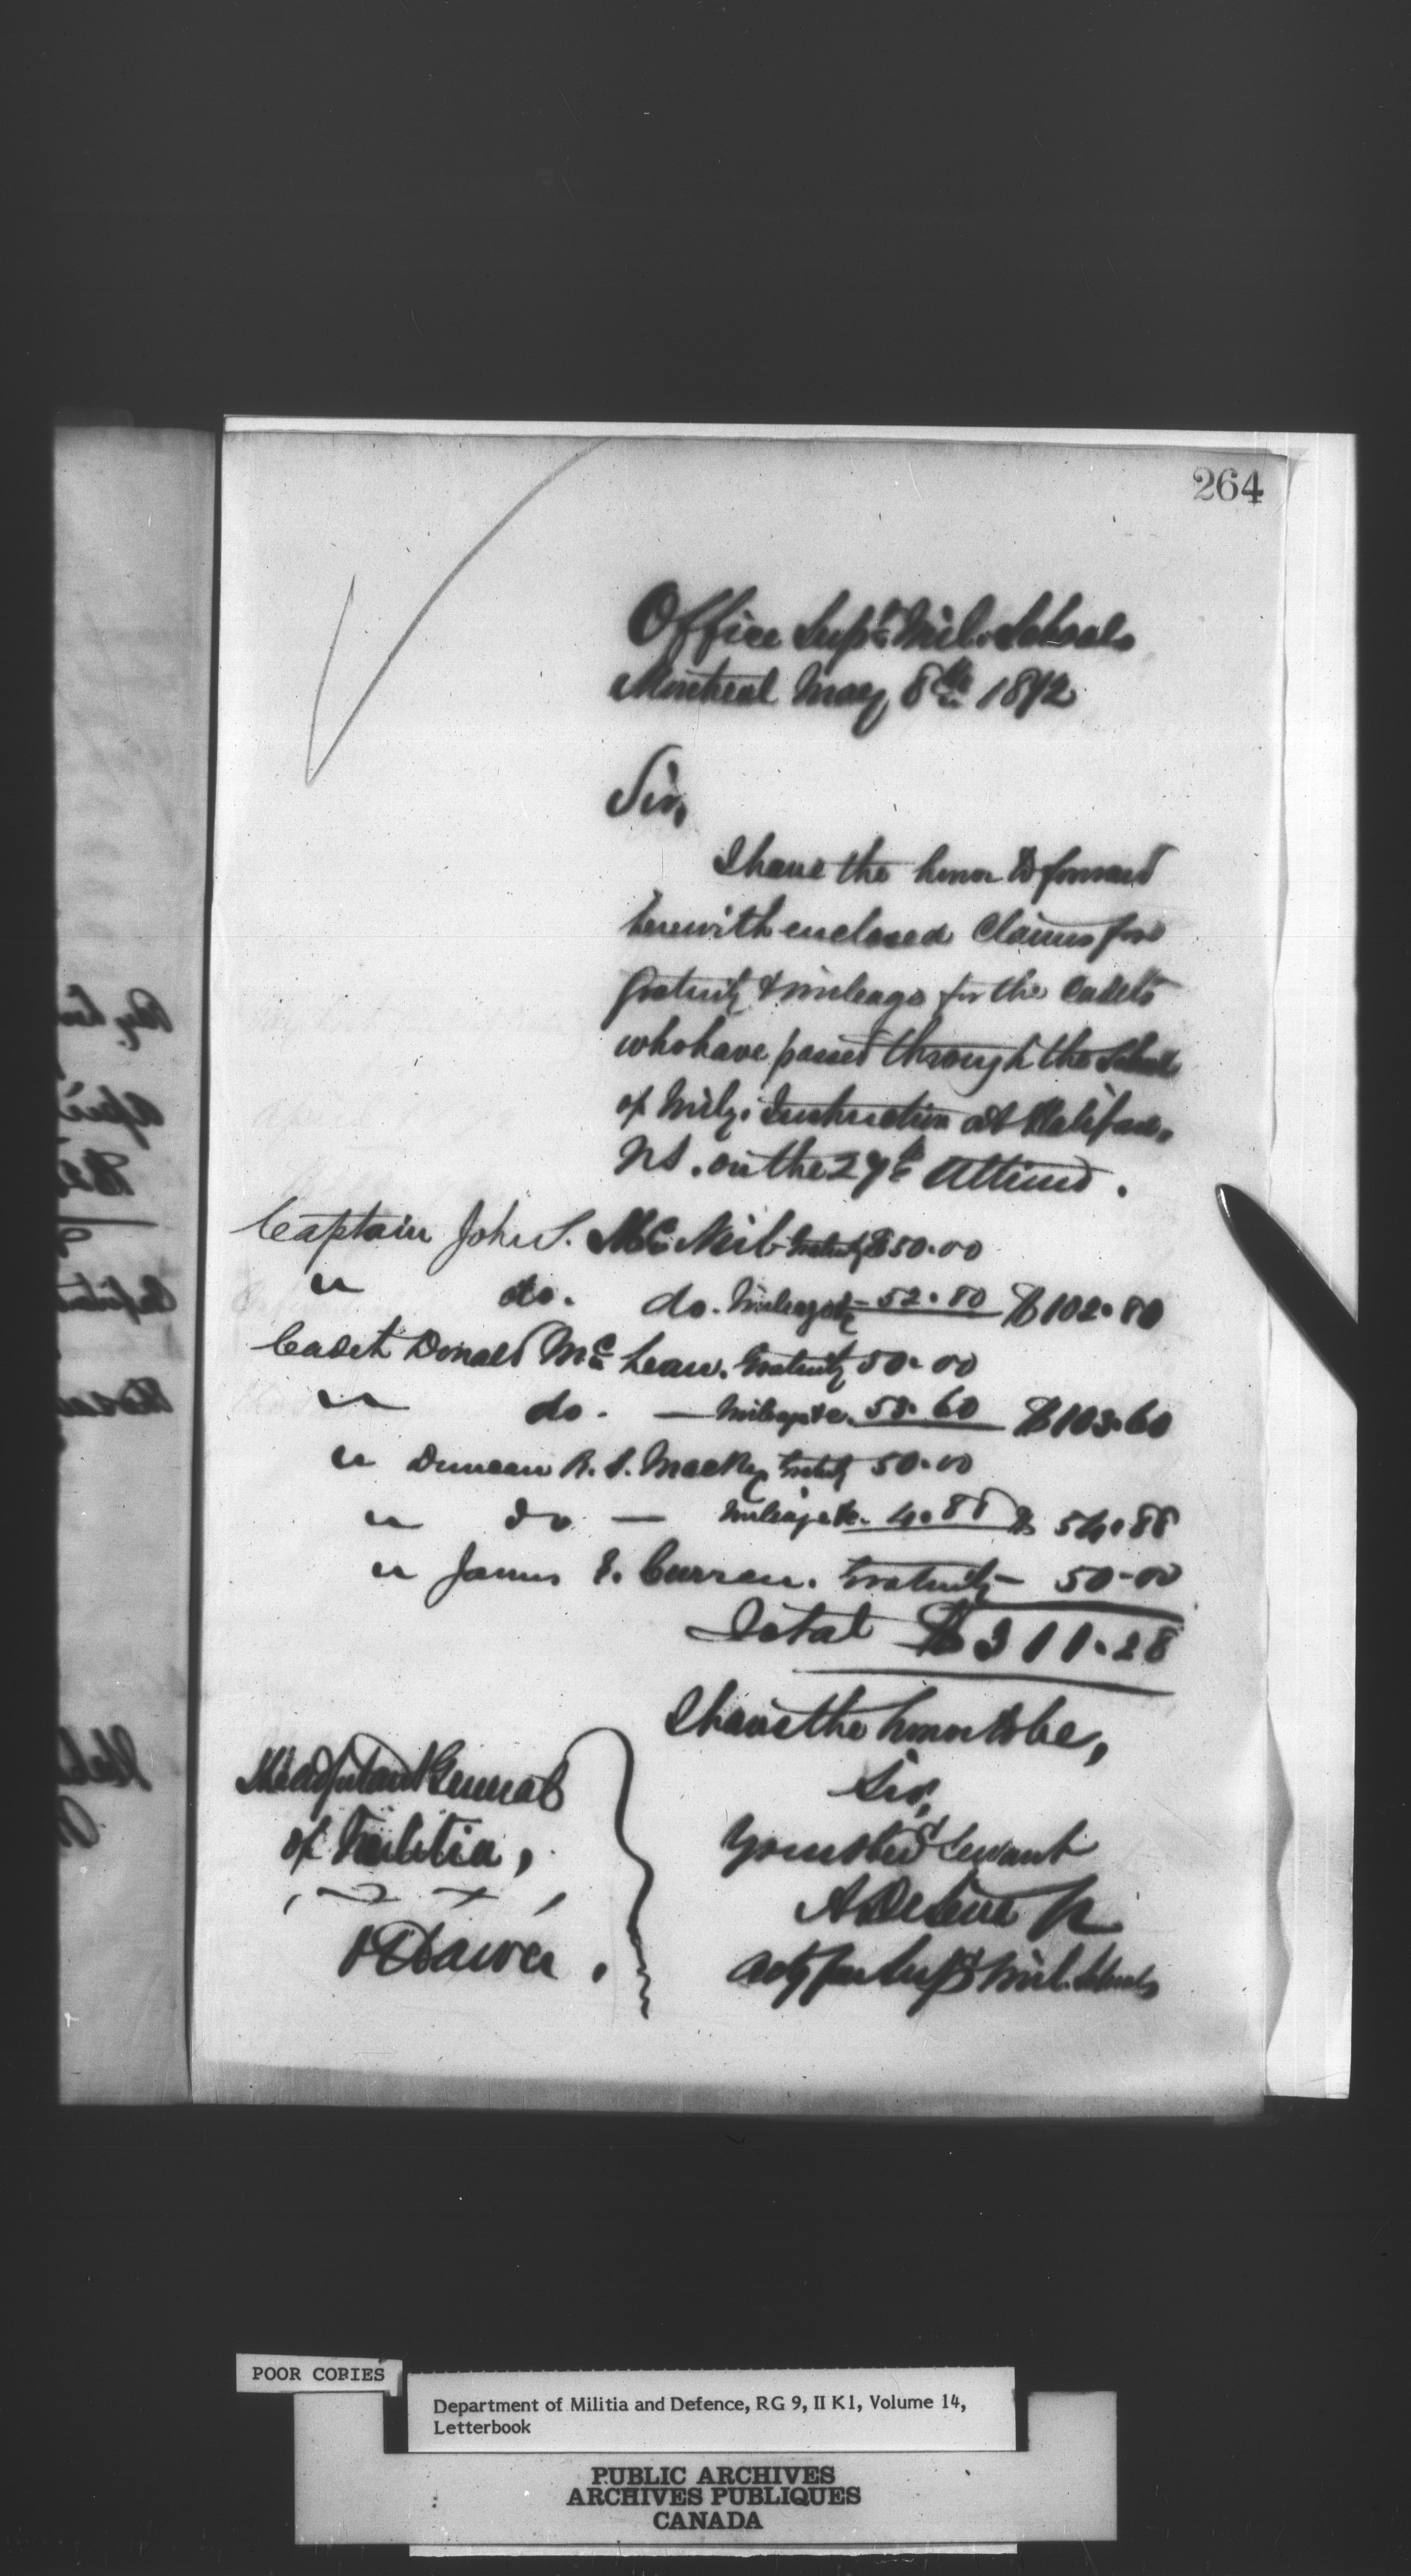 264
Office Supt. Mil. Schools
Montreal May 8th 1872
Sir,
I have the honor to forward
herewith enclosed Claims for
gratuity & mileage for the Cadets
who have passed through the School
of Mily. Instruction at Halifax,
N.S. on the 27th Ultimo.
Captain John S. McNeil Gratuity $50.00
" do. do. Mileage &c 52.80 $102.80
Cadet Donald McLean. Gratuity 50.00
" do. — Mileage &c. 53.60 $103.60
" Duncan R. S. Gratuity 50.00
" do — Mileage &c. 4.88 $ 54.88
" James Curran. Gratuity — 50.00
Total $311.28
I have the honor to be,
Sir,
Your Obed Servant
for Supt Mil. Schools
The Adjutant General
of Militia,
Ottawa.
POOR COPIES
Department of Militia and Defence, RG 9, II K1, Volume 14,
Letterbook
PUBLIC ARCHIVES
ARCHIVES PUBLIQUES
CANADA